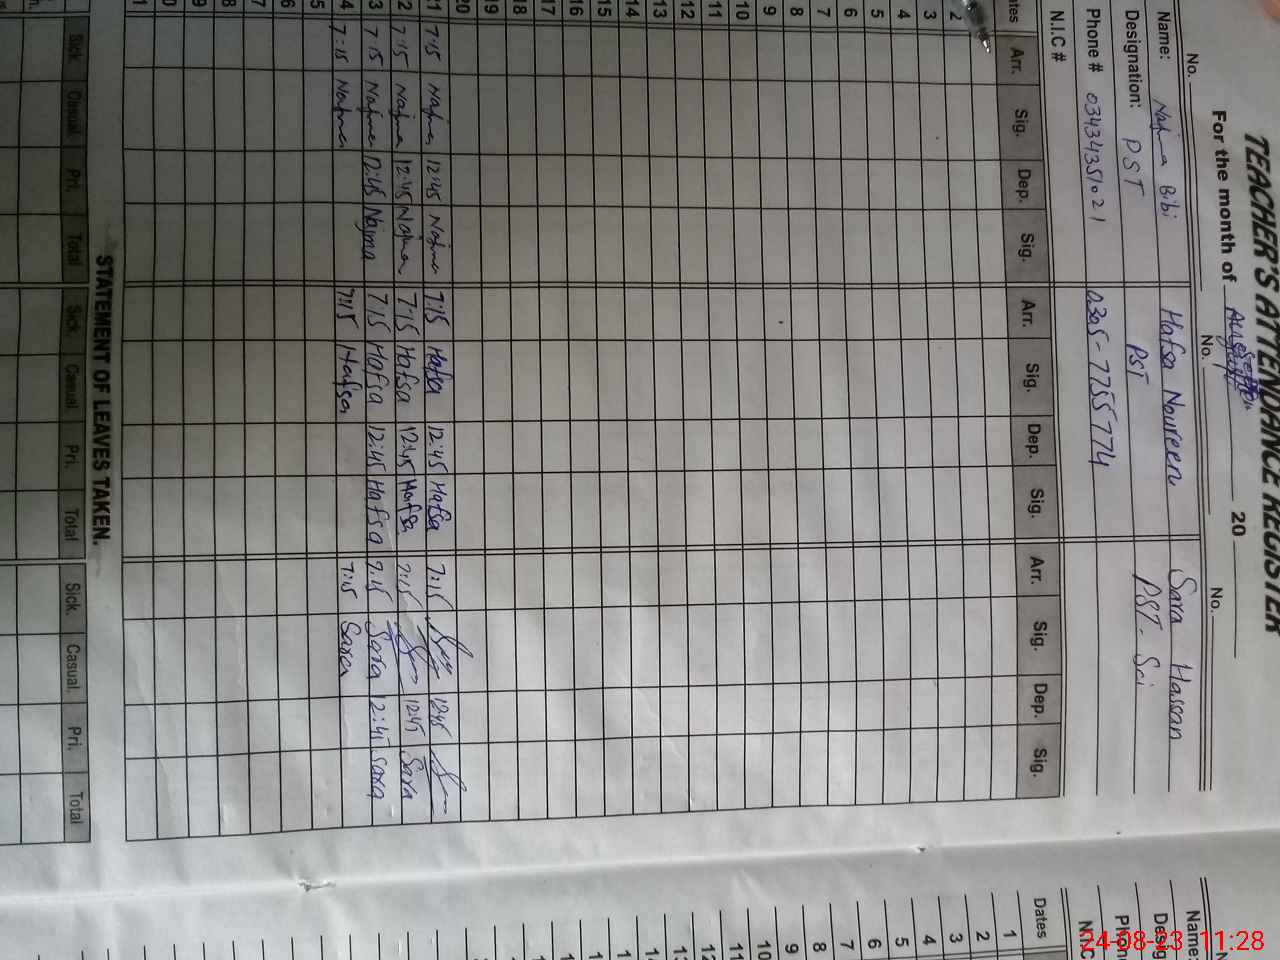 TEACHER'S ATTENDANCE REGISTER
For the month of August 20
No. No. No.
Name: Najma Bibi Hafsa Noureen Sara Hassan
Designation: PST PST PST. Sci
Phone # 03434351021 0305-7755774
N.I.C #
Arr. Sig. Dep. Sig. Arr. Sig. Dep. Sig. Arr. Sig. Dep. Sig.
2
3
4
5
6
7
8
9
10
11
12
13
14
15
16
17
18
19
20
21 7:15 Najma 12:45 Najma 7:15 Hafsa 12:45 Hafsa 7:15 12:45
2 7:15 Najma 12:45 Najma 7:15 Hafsa 12:45 Hafsa 7:15 12:45 Sara
3 7:15 Najma 12:45 Najma 7:15 Hafsa 12:45 Hafsa 7:15 Sara 12:45 Sara
4 7:15 Najma 7:15 Hafsa 7:15 Sara
5
6
7
8
9
0
1
STATEMENT OF LEAVES TAKEN.
Sick Casual Pri. Total Sick. Casual. Pri. Total Sick. Casual. Pri. Total
Name:
Desig
Phon
N.I.C
Dates
1
2
3
4
5
6
7
8
9
10
11
12
24-08-23 11:28